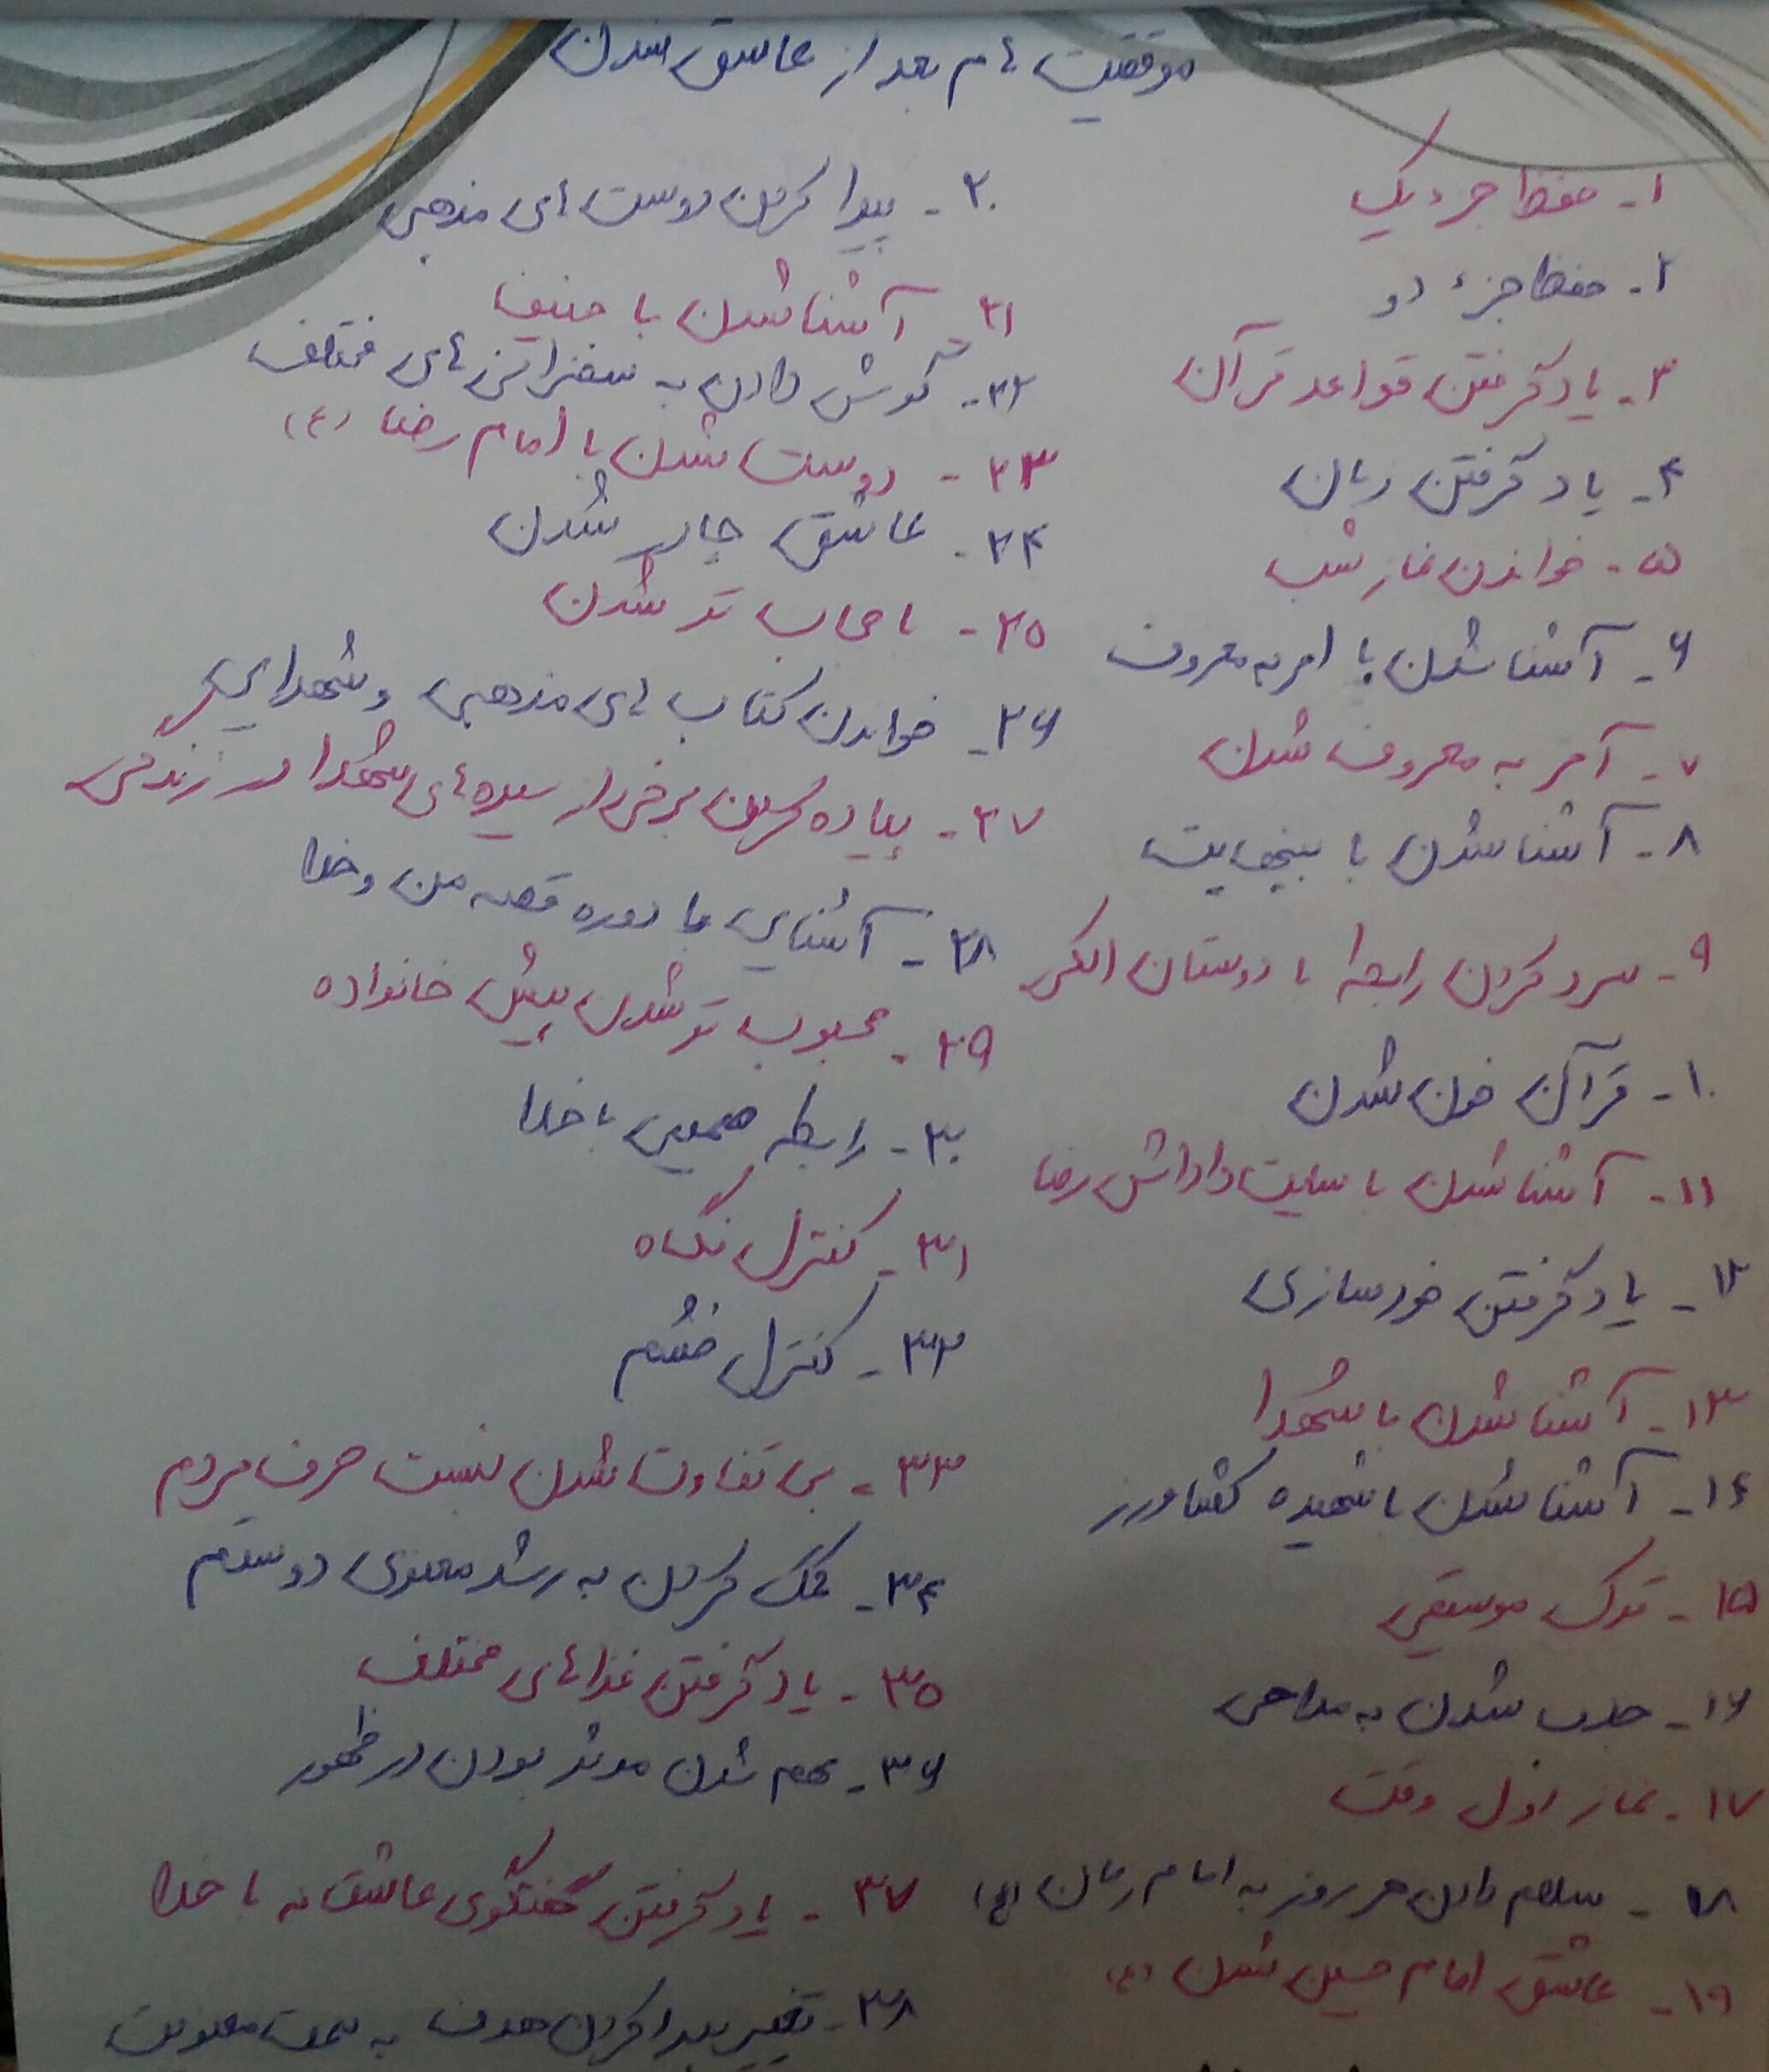 موفقیت هام بعد از عاشق شدن
۱- حفظ جزء یک
۲- حفظ جزء دو
۳- یاد گرفتن قواعد قرآن
۴- یاد گرفتن زبان
۵- خواندن نماز شب
۶- آشنا شدن با امر به معروف
۷- آمر به معروف شدن
۸- آشنا شدن با بینهایت
۹- سرد کردن رابطه با دوستان الکی
۱۰- قرآن خون شدن
۱۱- آشنا شدن با سایت داداش رضا
۱۲- یاد گرفتن خودسازی
۱۳- آشنا شدن با شهدا
۱۴- آشنا شدن با شهیده کشاورز
۱۵- ترک موسیقی
۱۶- جذب شدن به مداحی
۱۷- نماز اول وقت
۱۸- سلام دادن هر روز به امام زمان (عج)
۱۹- عاشق امام حسین شدن (ع)
۲۰- پیدا کردن دوست های مذهبی
۲۱- آشنا شدن با حنیف
۲۲- گوش دادن به سخنرانی های مختلف
۲۳- دوست شدن با امام رضا (ع)
۲۴- عاشق چادر شدن
۲۵- با حجاب تر شدن
۲۶- خواندن کتاب های مذهبی و شهدایی
۲۷- پیاده کردن برخی از سیره های شهدا در زندگی
۲۸- آشنایی با دوره قصه من و خدا
۲۹- محبوب تر شدن پیش خانواده
۳۰- رابطه صمیمی با خدا
۳۱- کنترل نگاه
۳۲- کنترل خشم
۳۳- بی تفاوت شدن نسبت حرف مردم
۳۴- کمک کردن به رشد معنوی دوستم
۳۵- یاد گرفتن غذاهای مختلف
۳۶- مهم شدن موثر بودن در ظهور
۳۷- یاد گرفتن گفتگوی عاشقانه با خدا
۳۸- تغییر پیدا کردن هدف به سمت معنویت